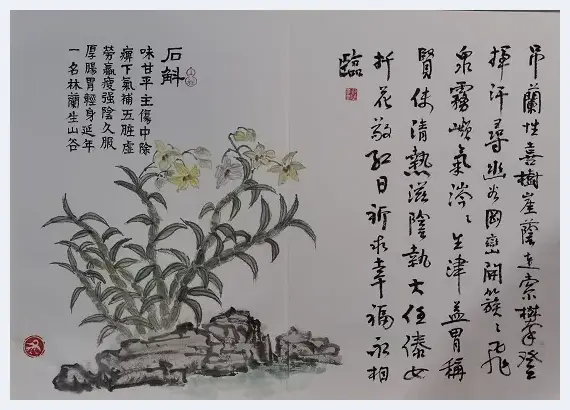 吊蘭性喜樹崖蔭連索攀登
揮汗尋幽谷岡巒開簇々飛
泉霧氣々生津益胃稱
賢使清熱滋陰執大任傣女
折花敬紅日祈求幸福永相
臨
石斛
味甘平主傷中除
痹下氣補五脏虛
勞羸瘦强陰久服
厚腸胃輕身延年
一名林蘭生山谷